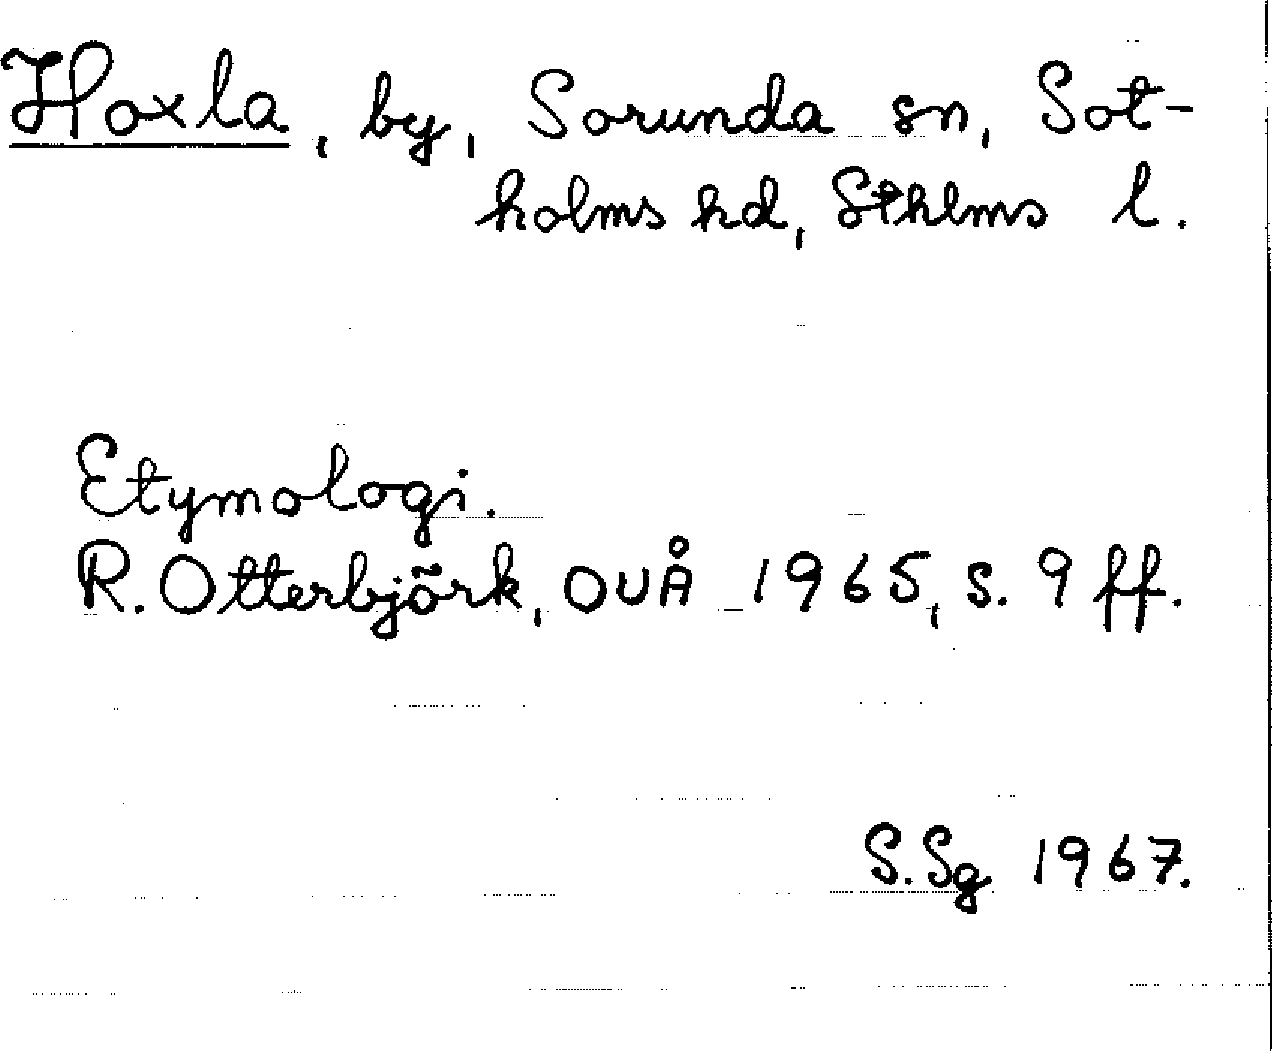 Hoxla, by, Sorunda sn, Sot-
holms hd, Sthlms l.
Etymologi.
R. Otterbjörk, OUÅ 1965, s. 9 ff.
S. Sg 1967.